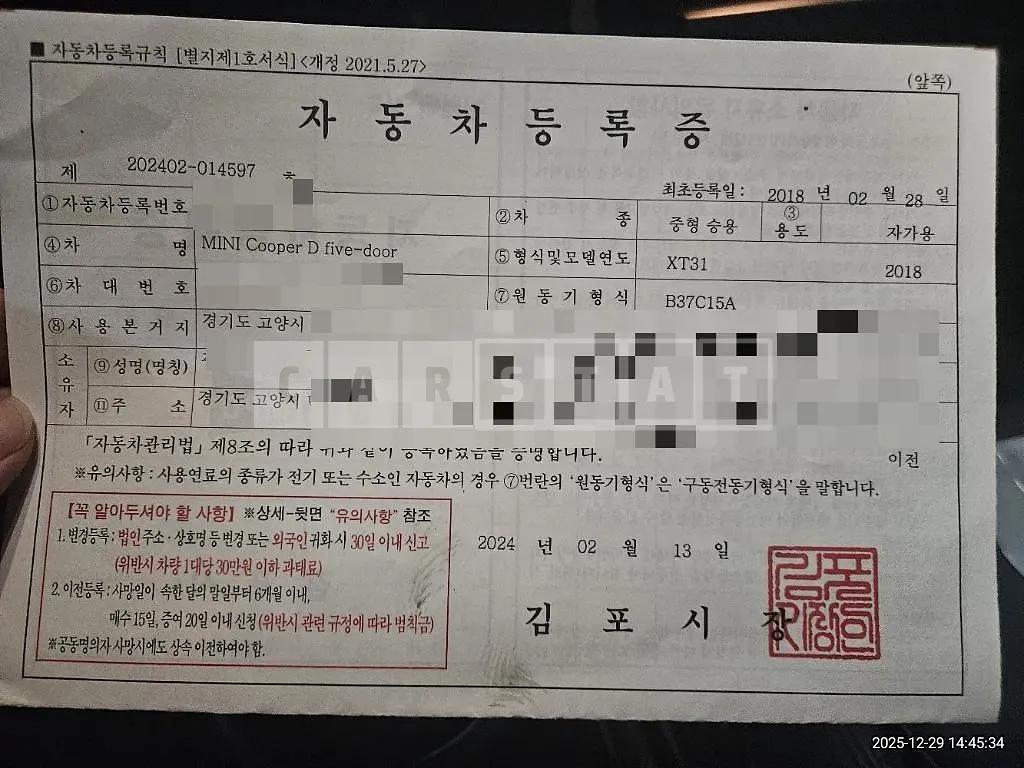 ■ 자동차등록규칙 [별지제1호서식] <개정 2021.5.27>
(앞쪽)
자 동 차 등 록 증
제 202402-014597 호
최초등록일 : 2018 년 02 월 28 일
①자동차등록번호
②차 종 중형 승용 ③용도 자가용
④차 명 MINI Cooper D five-door
⑤형식및모델연도 XT31 2018
⑥차 대 번 호
⑦원 동 기 형 식 B37C15A
⑧사 용 본 거 지 경기도 고양시
소유자 ⑨성명(명칭)
⑪주 소 경기도 고양시
CARSTAT
「자동차관리법」 제8조의 따라 위와 같이 등록하였음을 증명합니다.
이전
※유의사항 : 사용연료의 종류가 전기 또는 수소인 자동차의 경우 ⑦번란의 '원동기형식'은 '구동전동기형식'을 말합니다.
【꼭 알아두셔야 할 사항】 ※상세-뒷면 "유의사항" 참조
1. 변경등록 : 법인주소·상호명 등 변경 또는 외국인 귀화 시 30일 이내 신고
(위반시 차량 1대당 30만원 이하 과태료)
2. 이전등록 : 사망일이 속한 달의 말일부터 6개월 이내,
매수 15일, 증여 20일 이내 신청 (위반시 관련 규정에 따라 범칙금)
※공동명의자 사망시에도 상속 이전하여야 함.
2024 년 02 월 13 일
김 포 시 장
2025-12-29 14:45:34